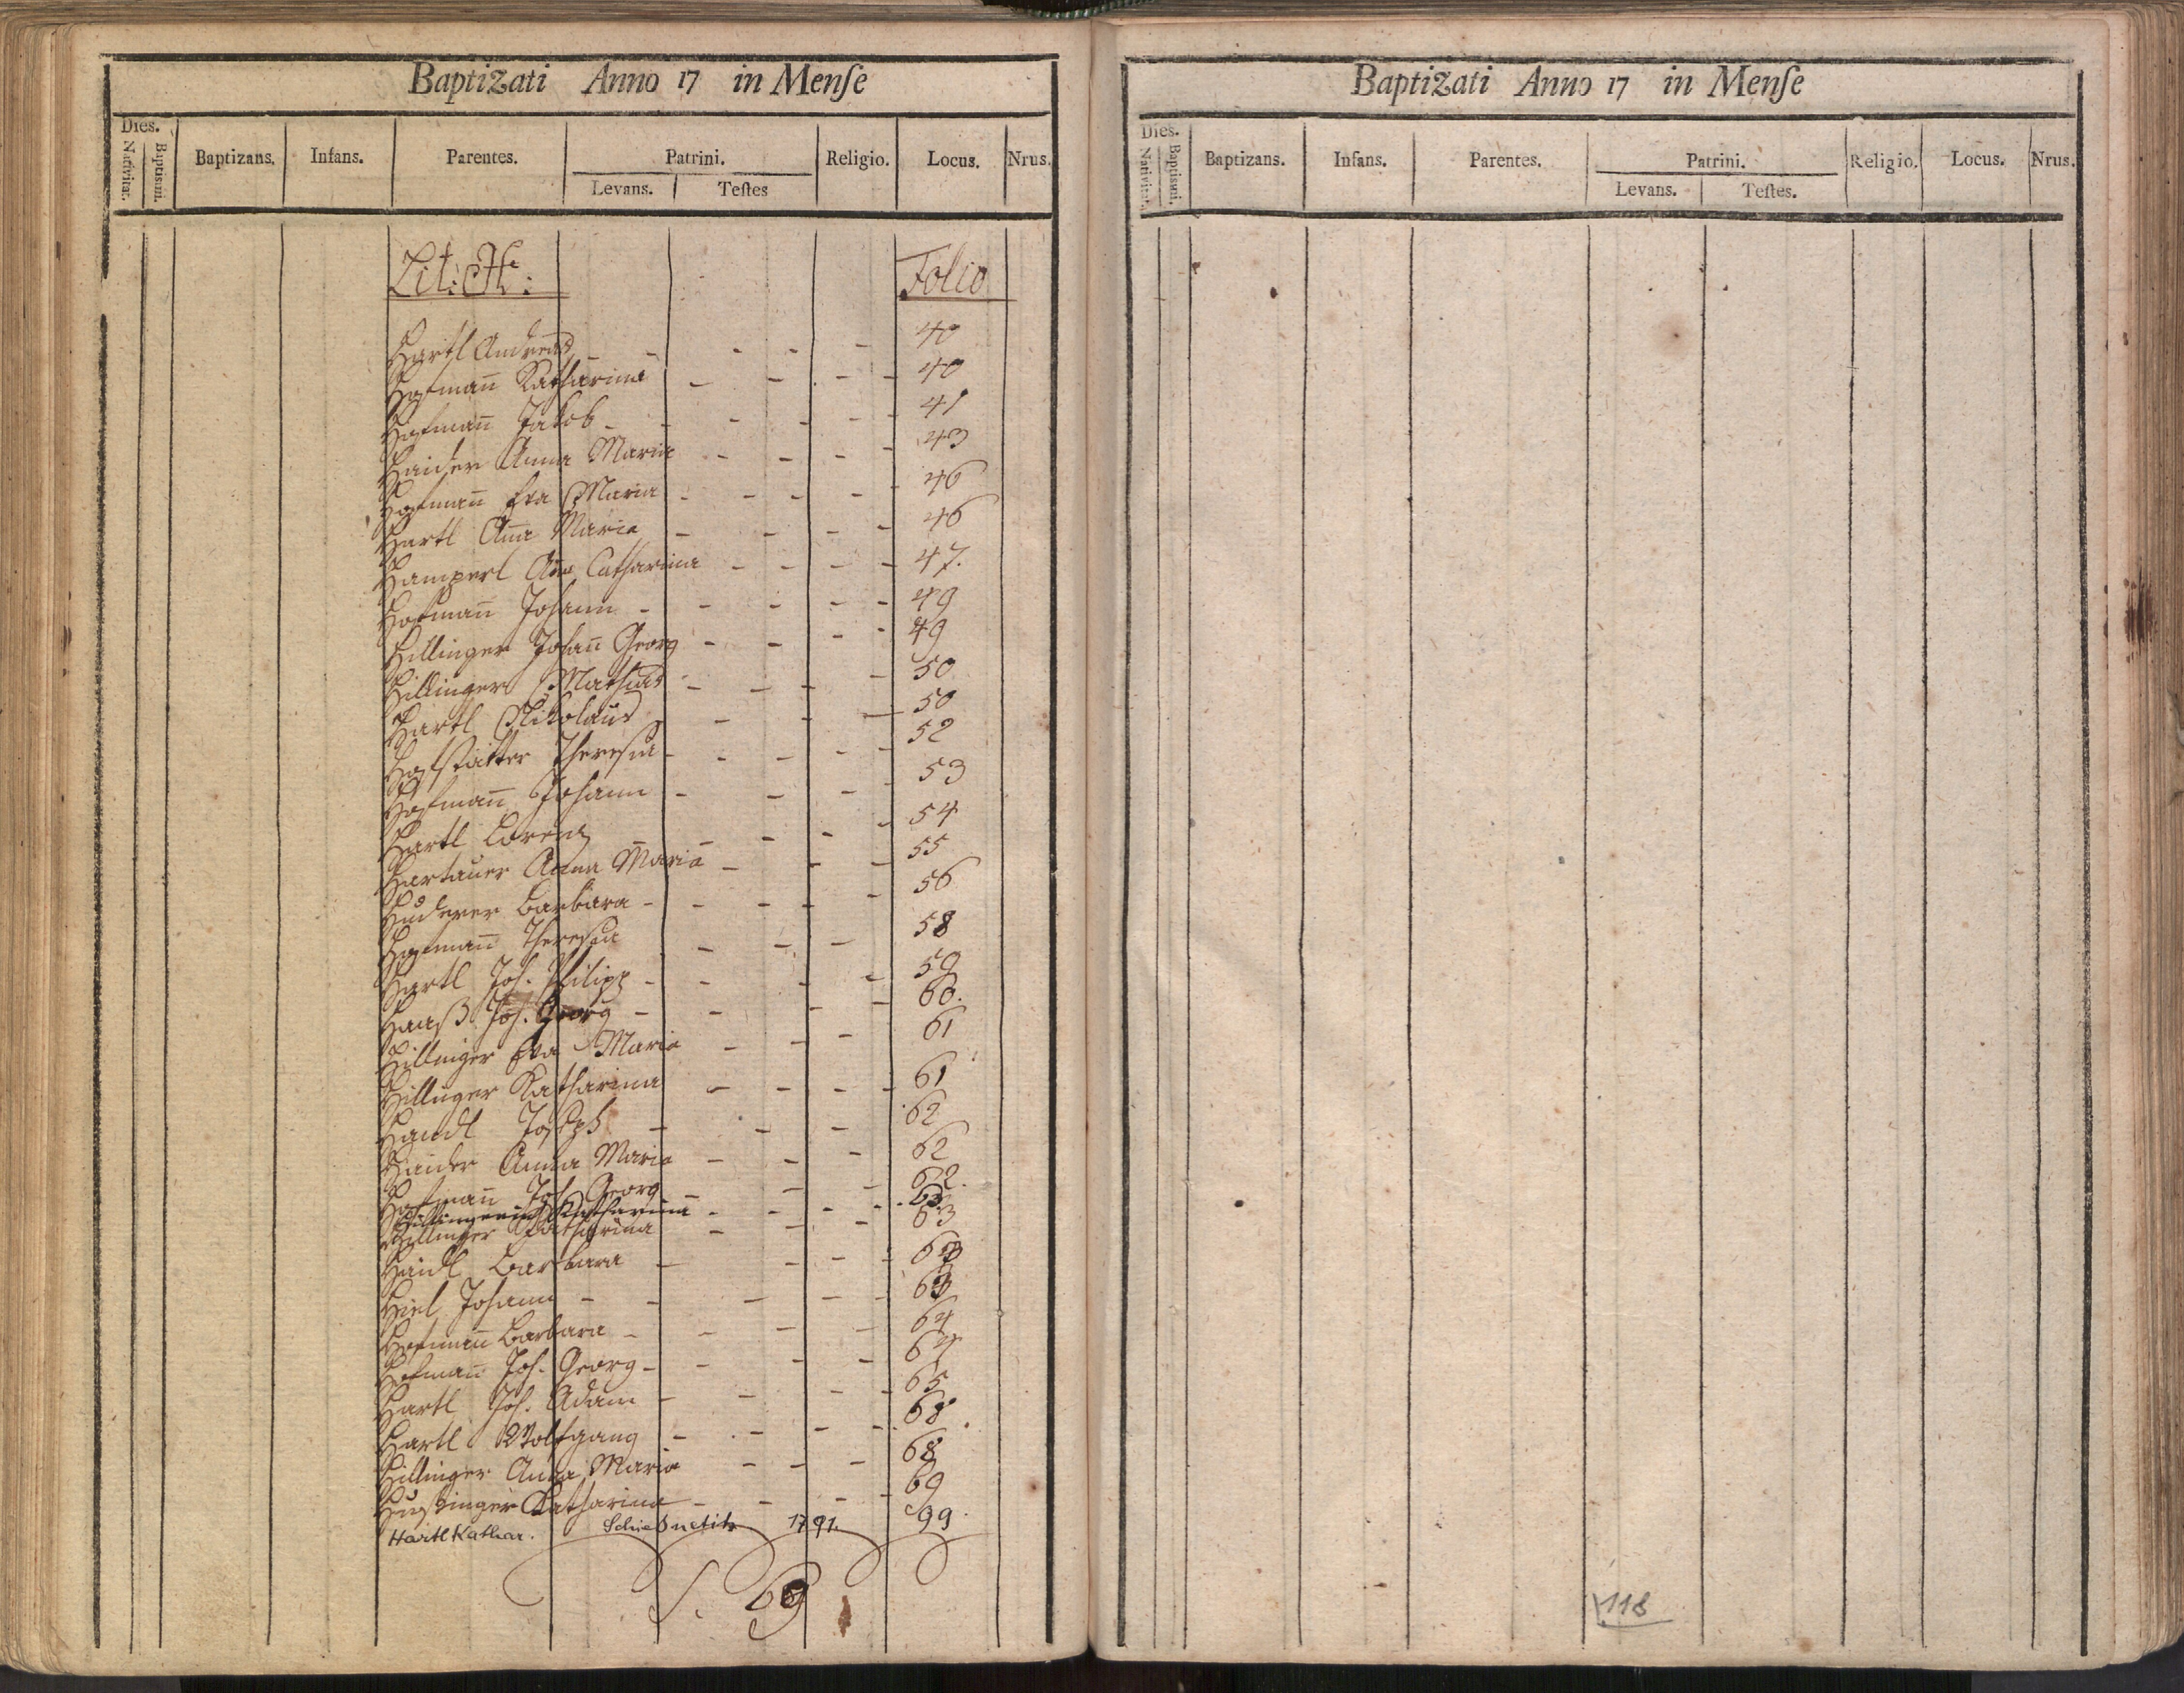 Baptizati Anno 17 in Menſe
Dies. Nativitat. Baptismi. Baptizans. Infans. Parentes. Patrini. Levans. Teſtes Religio. Locus. Nrus.
Lit: H: Folio
Hartl Andreas - - - - - 40
Hofmañ Katharina - - - - - 40
Hofmañ Jakob - - - - - 41
Haider Anna Maria - - - - 43
Hofmañ Eva Maria - - - - 46
Hartl Aña Maria - - - - 46
Hamperl Aña Catharina - - - - 47.
Hofmañ Johann - - - - - 49
Hillinger Johañ Georg - - - - 49
Hillinger Mathias - - - - 50
Hartl Nikolaus - - - 50
Hofstätter Theresia - - - - - 52
Hofmañ Johann - - - - - 53
Hartl Lorenz - - - - - 54
Hartauer Anna Maria - - - 55
Huderer Barbara - - - - - 56
Hofmañ Theresia - - - 58
Hartl Joh. Philipp - - - - 59
Haaß Joh. Georg - - - - 60.
Hillinger Eva Maria - - - - 61
Hillinger Katharina - - - - 61
Haidl Joseph - - - 62
Haider Anna Maria - - - 62
Hofmañ Joh. Georg - - - 62.
Hillingerin Katharina - - - - 63
Hillinger Katharina - - - 63
Haidl Barbara - - - - 63
Hirl Johann - - - - - 63
Hofmañ Barbara - - - - 64
Hofmañ Joh. Georg - - - - 64
Hartl Joh. Adam - - - - 65
Hartl Wolfgang - - - - 68
Hillinger Anna Maria - - - 68
Katharina - - - - 69
Hartl Kathar. Schießnetitz 1791. 99.
S. 69
Baptizati Anno 17 in Menſe
Dies. Nativitat. Baptismi. Baptizans. Infans. Parentes. Patrini. Levans. Teſtes. Religio. Locus. Nrus.
118